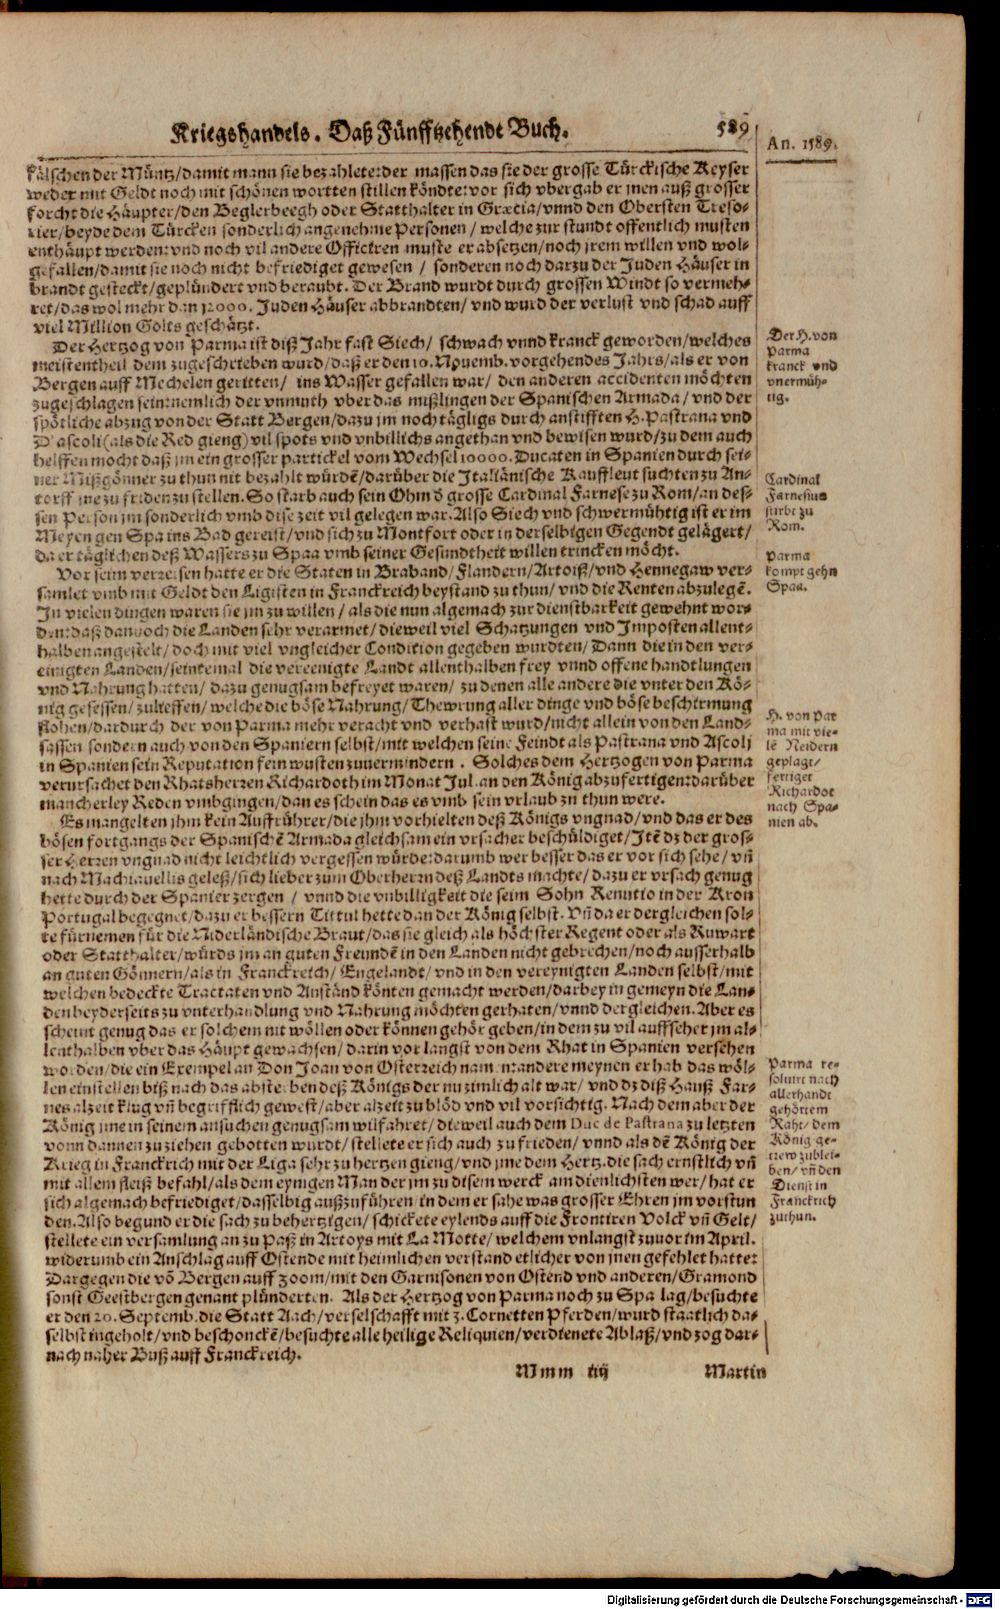 Kriegshandels. Daß Fünfftzehendt Buch. 589
An. 1589.
fälschen der Müntz/damit mann sie bezahlete:der massen das sie der grosse Türckische Keyser
weder mit Geldt noch mit schönen wortten stillen köndte:vor sich vbergab er jnen auß grosser
forcht die Häupter/den Beglerbeegh oder Statthalter in Græcia/vnnd den Obersten Treso-
rier/beyde dem Türcken sonderlich angenehme Personen/ welche zur stundt offentlich musten
enthäupt werden:vnd noch vil andere Officiren muste er absetzen/noch jrem willen vnd wol-
gefallen/damit sie noch nicht befriediget gewesen / sonderen noch darzu der Juden Häuser in
brandt gesteckt/geplündert vnd beraubt. Der Brand wurdt durch grossen Windt so vermeh-
ret/das wol mehr dan 12000. Juden Häuser abbrandten/ vnd wurd der verlust vnd schad auff
viel Million Golts geschätzt.
Der Hertzog von Parma ist diß Jahr fast Siech/ schwach vnnd kranck geworden/welches
meistentheil dem zugeschrieben wurd/daß er den 10. Nouemb. vorgehendes Jahrs/als er von
Bergen auff Mechelen geritten/ ins Wasser gefallen war/ den anderen accidenten möchten
zugeschlagen sein:nemlich der vnmuth vber das mißlingen der Spanischen Armada/ vnd der
spötliche abzug von der Statt Bergen/dazu jm noch tägligs durch anstifften H. Pastrana vnd
D'ascoli (als die Red gieng) vil spots vnd vnbillichs angethan vnd bewisen wurd/zu dem auch
helffen mocht daß jm ein grosser partickel vom Wechsel 10000. Ducaten in Spanien durch sei-
ner Mißgönner zu thun nit bezahlt würdē/darüber die Italiänische Kauffleut suchten zu An-
torff jne zu friden zu stellen. So starb auch sein Ohm d' grosse Cardinal Farnese zu Rom/an des-
sen Person jm sonderlich vmb dise zeit vil gelegen war. Also Siech vnd schwermühtig ist er im
Meyen gen Spa ins Bad gereist/vnd sich zu Montfort oder in derselbigen Gegendt gelägert/
da er täglichen deß Wassers zu Spaa vmb seiner Gesundtheit willen trincken möcht.
Vor seim verreisen hatte er die Staten in Braband/Flandern/Artoiß/vnd Hennegaw ver-
samlet vmb mit Geldt den Ligisten in Franckreich beystand zu thun/ vnd die Renten abzulegē.
In vielen dingen waren sie jm zu willen/ als die nun algemach zur dienstbarkeit gewehnt wor-
den:daß dannoch die Landen sehr verarmet/dieweil viel Schatzungen vnd Imposten allent-
halben angestelt/ doch mit viel vngleicher Condition gegeben wurdten/ Dann die in den ver-
einigten Landen/seintemal die vereenigte Landt allenthalben frey vnnd offene handtlungen
vnd Nahrung hatten/ dazu genugsam befreyet waren/ zu denen alle andere die vnter den Kö-
nig gesessen/ zulieffen/ welche die böse Nahrung/Thewrung aller dinge vnd böse beschirmung
flohen/dardurch der von Parma mehr veracht vnd verhast wurd/nicht allein von den Land-
sassen sondern auch von den Spaniern selbst/mit welchen seine Feindt als Pastrana vnd Ascoli
in Spanien sein Reputation fein wusten zuuermindern. Solches dem Hertzogen von Parma
verursachet den Rhatsherren Richardoth im Monat Jul. an den König abzufertigen:darüber
mancherley Reden vmbgingen/dan es schein das es vmb sein vrlaub zu thun were.
Es mangelten jhm kein Auffrührer/die jhm vorhielten deß Königs vngnad/vnd das er des
bösen fortgangs der Spanischē Armada gleichsam ein vrsacher beschüldiget/Itē dz der gros-
ser Herren vngnad nicht leichtlich vergessen würde:darumb wer besser das er vor sich sehe/ vñ
nach Machiauellis geleß/sich lieber zum Oberherrn deß Landts machte/ dazu er vrsach genug
hette durch der Spanier zergen / vnnd die vnbilligkeit die seim Sohn Renutio in der Kron
Portugal begegnet/dazu er bessern Tittul hette dan der König selbst. Vñ da er dergleichen sol-
te fürnemen für die Niderländische Braut/das sie gleich als höchster Regent oder als Ruwart
oder Statthalter/würds jm an guten Freundē in den Landen nicht gebrechen/noch ausserhalb
an guten Gönnern/als in Franckreich/ Engelandt/ vnd in den vereynigten Landen selbst/mit
welchen bedeckte Tractaten vnd Anständ könten gemacht werden/darbey in gemeyn die Lan-
den beyderseits zu vnterhandlung vnd Nahrung möchten gerhaten/vnnd dergleichen. Aber es
scheint genug das er solchem nit wöllen oder können gehör geben/in dem zu vil auffseher jm al-
lenthalben vber das Häupt gewachsen/ darin vor langst von dem Rhat in Spanien versehen
worden/die ein Exempel an Don Joan von Osterreich nam:andere meynen er hab das wöl-
len einstellen biß nach das absterben deß Königs der nu zimlich alt war/ vnd dz diß Hauß Far-
nes alzeit klug vñ begrifflich gewest/aber alzeit zu blöd vnd vil vorsichtig. Nach dem aber der
König jme in seinem ansuchen genugsam wilfahret/dieweil auch dem Duc de Pastrana zu letzten
vonn dannen zu ziehen gebotten wurdt/stellete er sich auch zu frieden/ vnnd als dē König der
Krieg in Franckrich mit der Liga sehr zu hertzen gieng/vnd jme dem Hertz. die sach ernstlich vñ
mit allem fleiß befahl/als dem eynigen Man der jm zu disem werck am dienlichsten wer/hat er
sich algemach befriediget/dasselbig außzuführen in dem er sahe was grosser Ehren jm vorstun
den. Also begund er die sach zu behertzigen/ schickete eylends auff die Frontiren Volck vñ Gelt/
stellete ein versamlung an zu Paß in Artoys mit La Motte/ welchem vnlangst zuuor im April.
widerumb ein Anschlag auff Ostende mit heimlichen verstand etlicher von jnen gefehlet hatte:
Dargegen die võ Bergen auff Zoom/mit den Garnisonen von Ostend vnd anderen/Gramond
sonst Geestbergen genant plünderten. Als der Hertzog von Parma noch zu Spa lag/besuchte
er den 20. Septemb. die Statt Aach/verselschafft mit 3. Cornetten Pferden/wurd staatlich da-
selbst ingeholt/vnd beschonckē/besuchte alle heilige Reliquien/verdienete Ablaß/vnd zog dar-
nach naher Buß auff Franckreich.
Mmm iiij Martin
Der H. von
Parma
kranck vnd
vnermüh-
tig.
Cardinal
Farnesius
stirbt zu
Rom.
Parma
kompt gehn
Spaa.
H. von Par
ma mit vie-
lē Neidern
geplagt/
fertiget
Richardot
nach Spa-
nien ab.
Parma re-
soluirt nach
allerhandt
gehörtem
Raht/ dem
König ge-
trew zublei-
ben/ vñ den
Dienst in
Franckrich
zuthun.
Digitalisierung gefördert durch die Deutsche Forschungsgemeinschaft - DFG